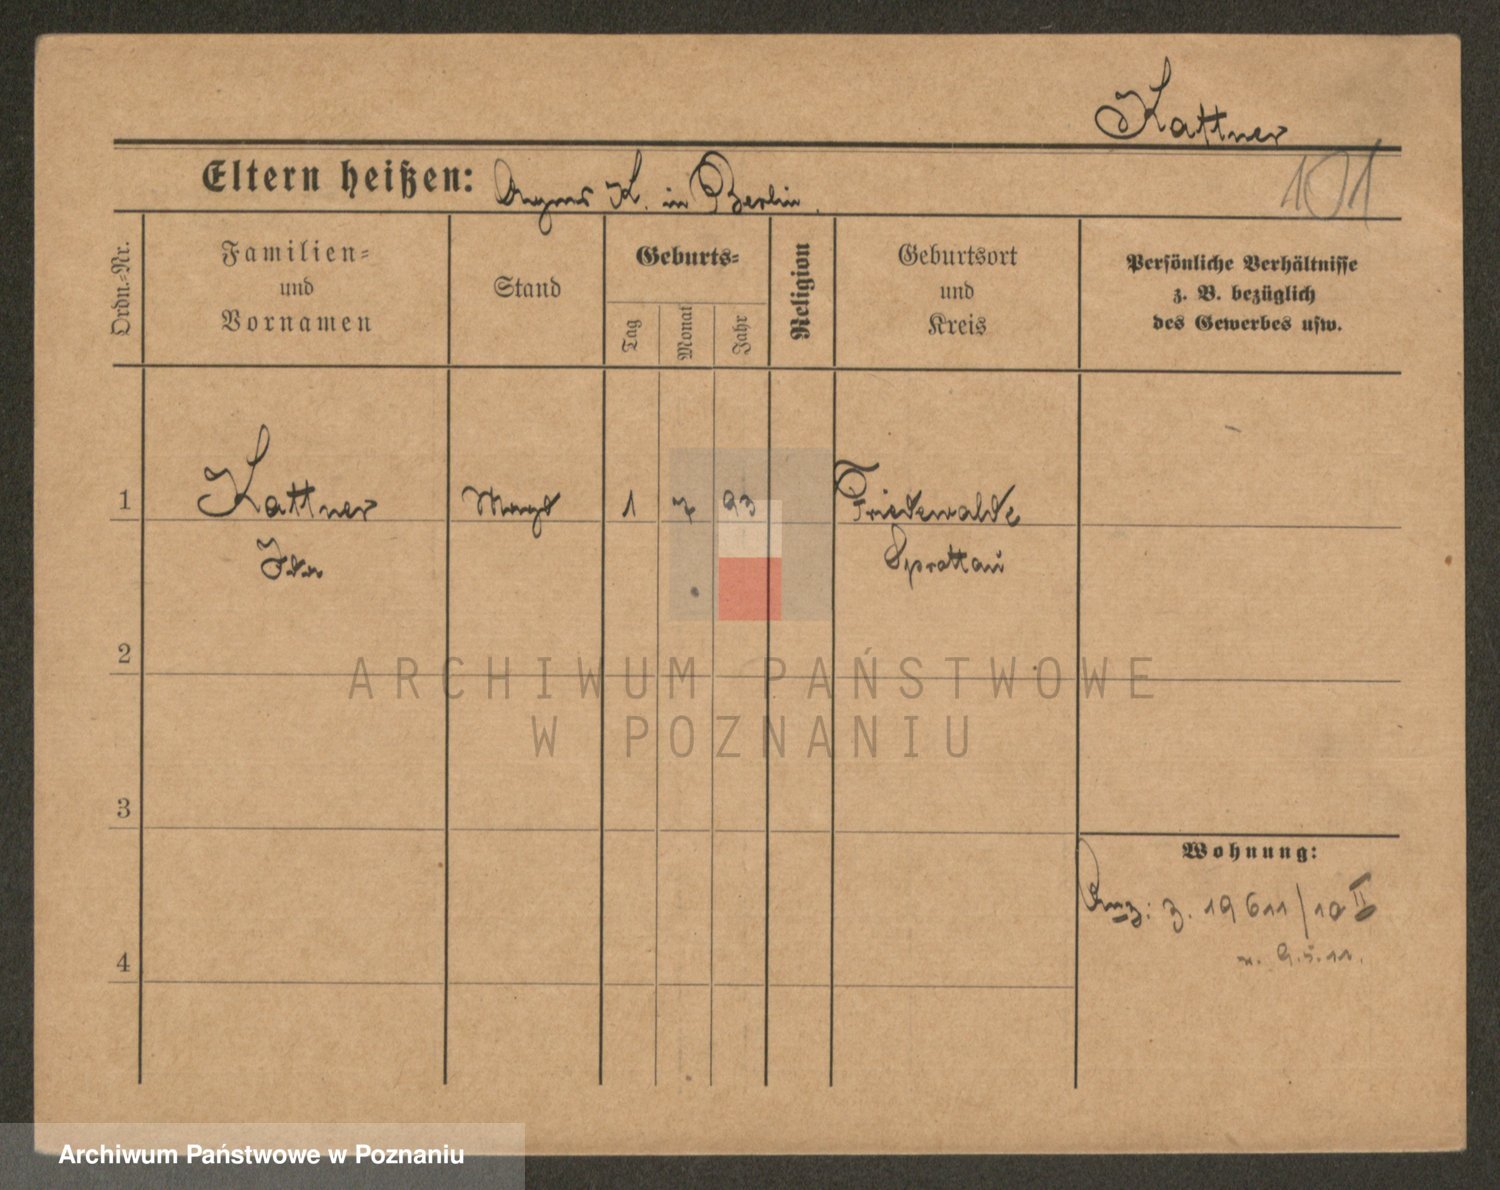 Kattner
Eltern heißen: Agnes K. in Berlin.
101
Ordn.-Nr.
Familien-
und
Vornamen
Stand
Geburts-
Tag
Monat
Jahr
Religion
Geburtsort
und
Kreis
Persönliche Verhältnisse
z. B. bezüglich
des Gewerbes usw.
1 Kattner Magd 1 7 93 Friedewalde
Ida Sprottau
2
ARCHIWUM PAŃSTWOWE
W POZNANIU
3
Wohnung:
Anz: Z. 19611/10 II
v. 9.5.11.
4
Archiwum Państwowe w Poznaniu